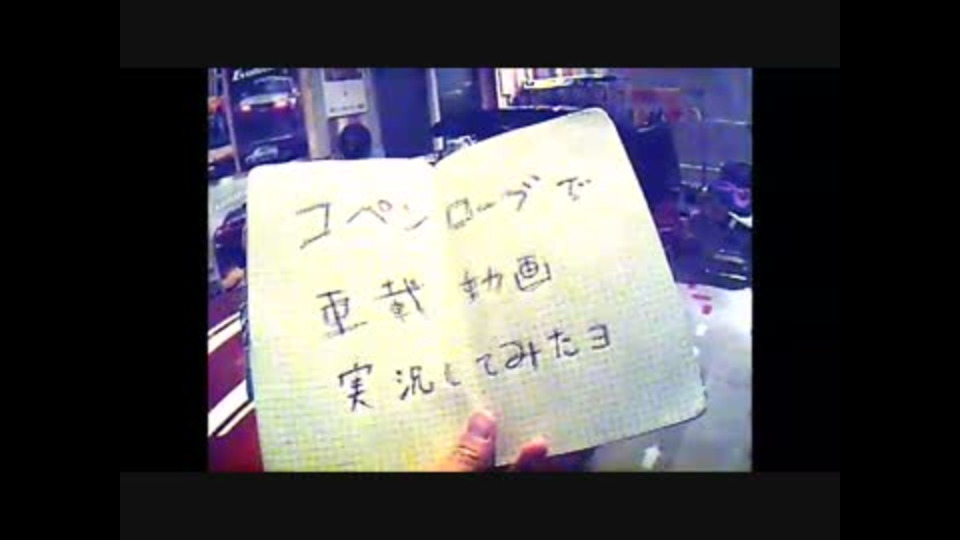 コペンローブで
車載動画
実況してみたヨ